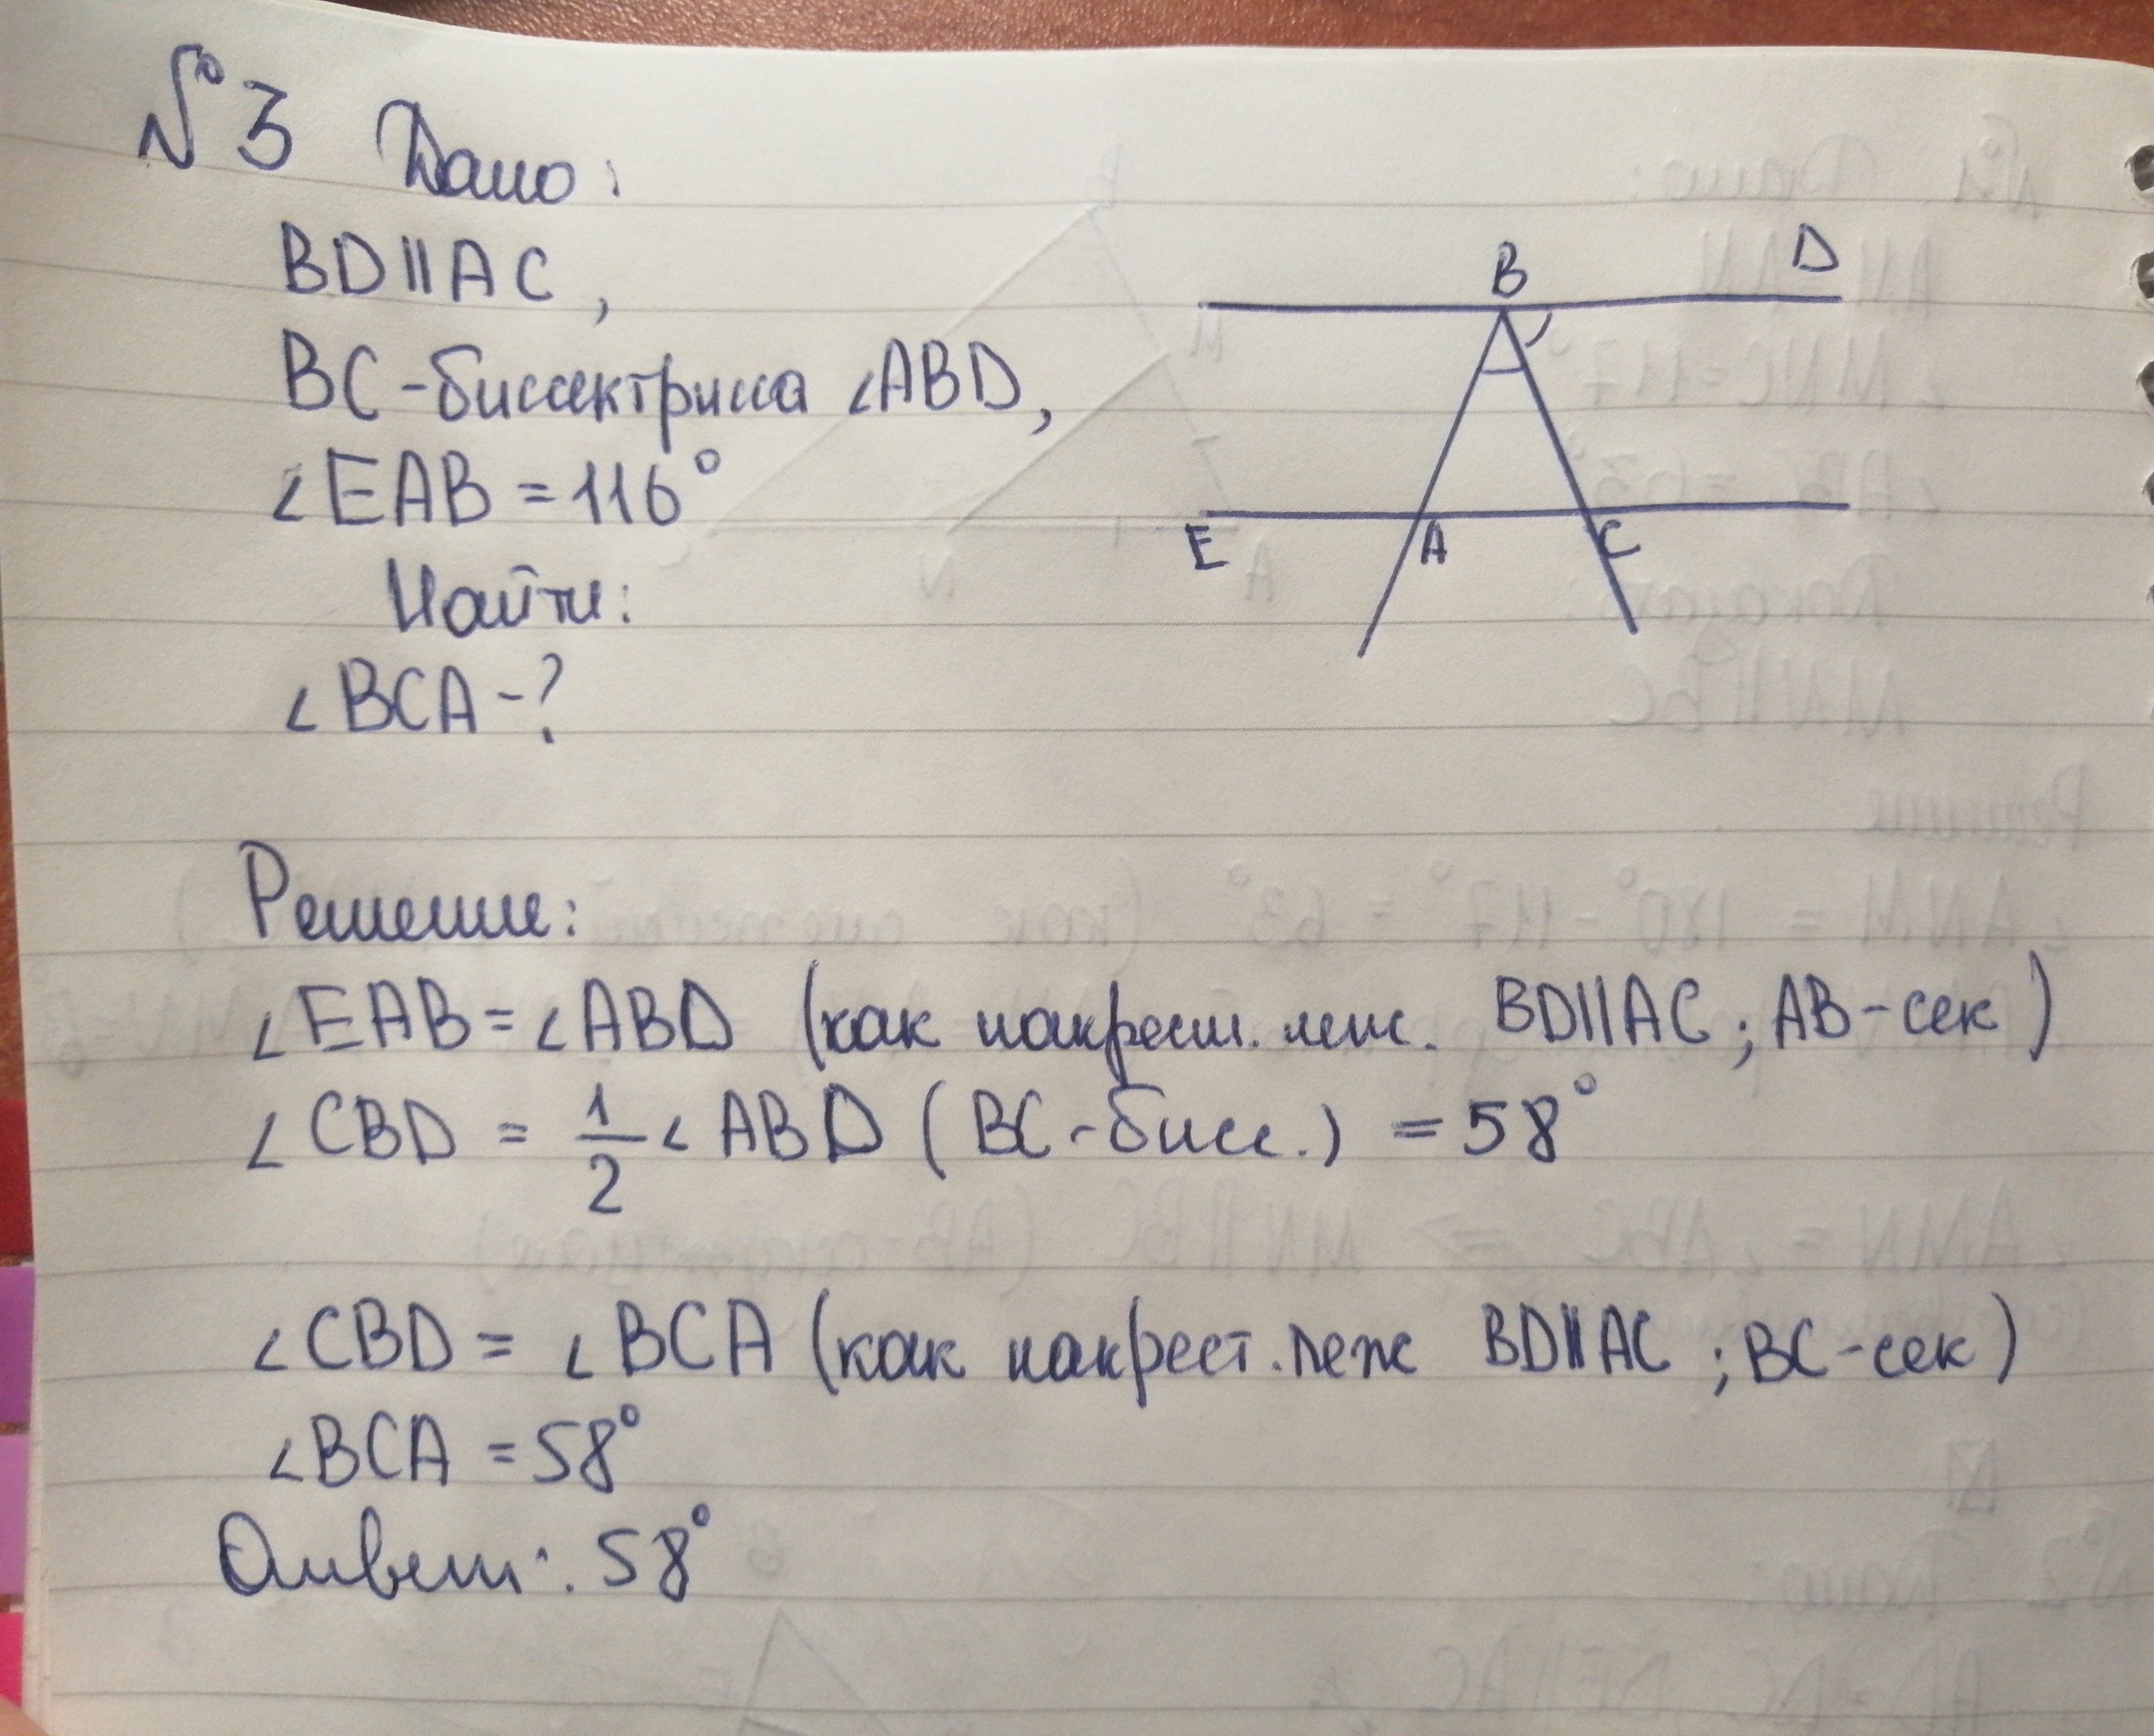 №3 Дано:
BD||AC,
BC-биссектриса ∠ABD,
∠EAB=116°
Найти:
∠BCA-?
B D
E A C
Решение:
∠EAB=∠ABD (как накрест. леж. BD||AC; AB-сек)
∠CBD = 1/2 ∠ABD (BC-бисс.) = 58°
∠CBD = ∠BCA (как накрест. леж BD||AC; BC-сек)
∠BCA = 58°
Ответ: 58°